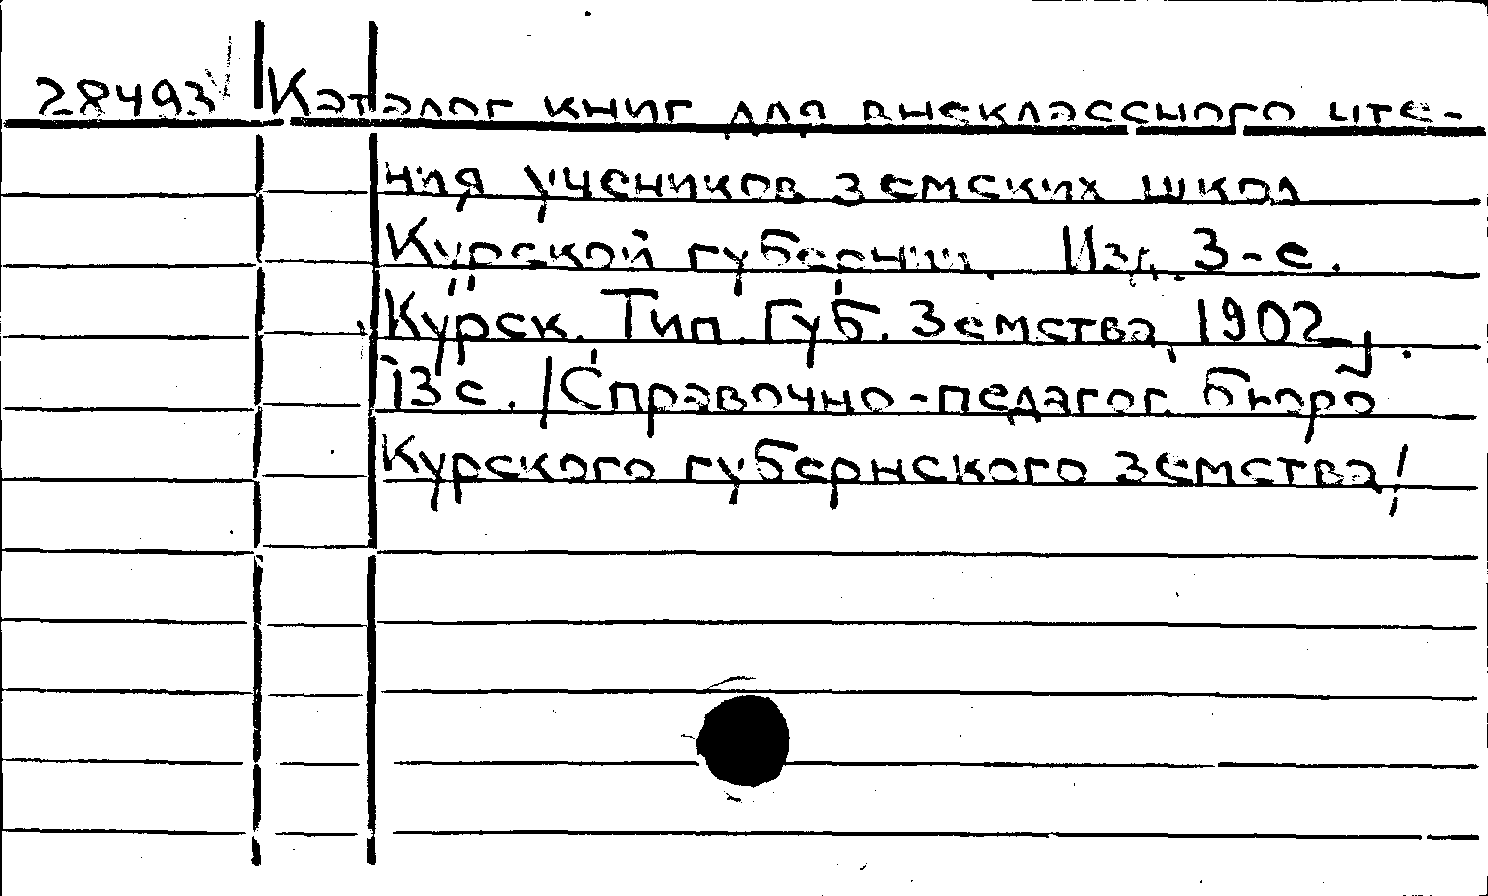 28493 Каталог книг для внеклассного чте-
ния учеников земских школ
Курской губернии. Изд. 3-е.
Курск. Тип. Губ. Земства, 1902,
13 с. /Справочно-педагог. бюро
Курского губернского земства/